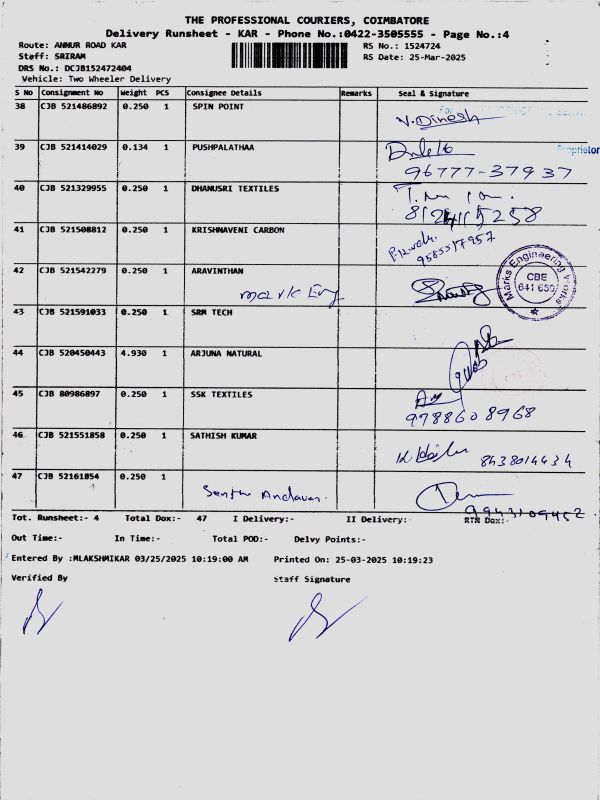 THE PROFESSIONAL COURIERS, COIMBATORE
Delivery Runsheet - KAR - Phone No.:0422-3505555 - Page No.:4
Route: ANNUR ROAD KAR RS No.: 1524724
Staff: SRIRAM RS Date: 25-Mar-2025
DRS No.: DCJB152472404
Vehicle: Two Wheeler Delivery
S No Consignment No Weight PCS Consignee Details Remarks Seal & Signature
38 CJB 521486892 0.250 1 SPIN POINT
V. Dinesh
Proprietor
39 CJB 521414029 0.134 1 PUSHPALATHAA
96777-37937
40 CJB 521329955 0.250 1 DHANUSRI TEXTILES
41 CJB 521508812 0.250 1 KRISHNAVENI CARBON
9585317957
42 CJB 521542279 0.250 1 ARAVINTHAN
Mark Eng
Marks Engineering Works
CBE
641 659
43 CJB 521591033 0.250 1 SRM TECH
44 CJB 520450443 4.930 1 ARJUNA NATURAL
45 CJB 80986897 0.250 1 SSK TEXTILES
9788608968
46 CJB 521551858 0.250 1 SATHISH KUMAR
8438014434
47 CJB 52161854 0.250 1
Senthi Andavar
9943109452
Tot. Runsheet:- 4 Total Dox:- 47 I Delivery:- II Delivery:- RTN Dox:-
Out Time:- In Time:- Total POD:- Delvy Points:-
Entered By :MLAKSHMIKAR 03/25/2025 10:19:00 AM Printed On: 25-03-2025 10:19:23
Verified By Staff Signature